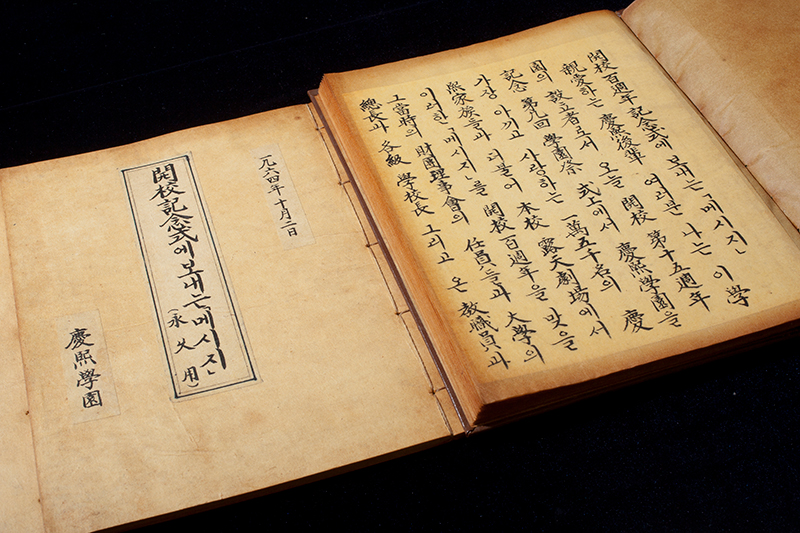 一九六四年 十月二日
開校記念式에 보내는 「메시지」
(永久用)
慶熙學園
開校百週年 記念式에 보내는 「메시지」
親愛하는 慶熙後輩 여러분 나는 이 學
園의 設立者로서 오늘 開校 第十五週年
記念 第九回 學園祭 式上에서 慶熙學園을
가장 아끼고 사랑하는 一萬五千名의 慶
熙家族들과 더불어 本校 露天劇場에서
이러한 「메시지」를 開校百週年을 맞을
그 當時의 財團理事會의 任員들과 大學의
總長과 各級 學校長 그리고 온 敎職員과